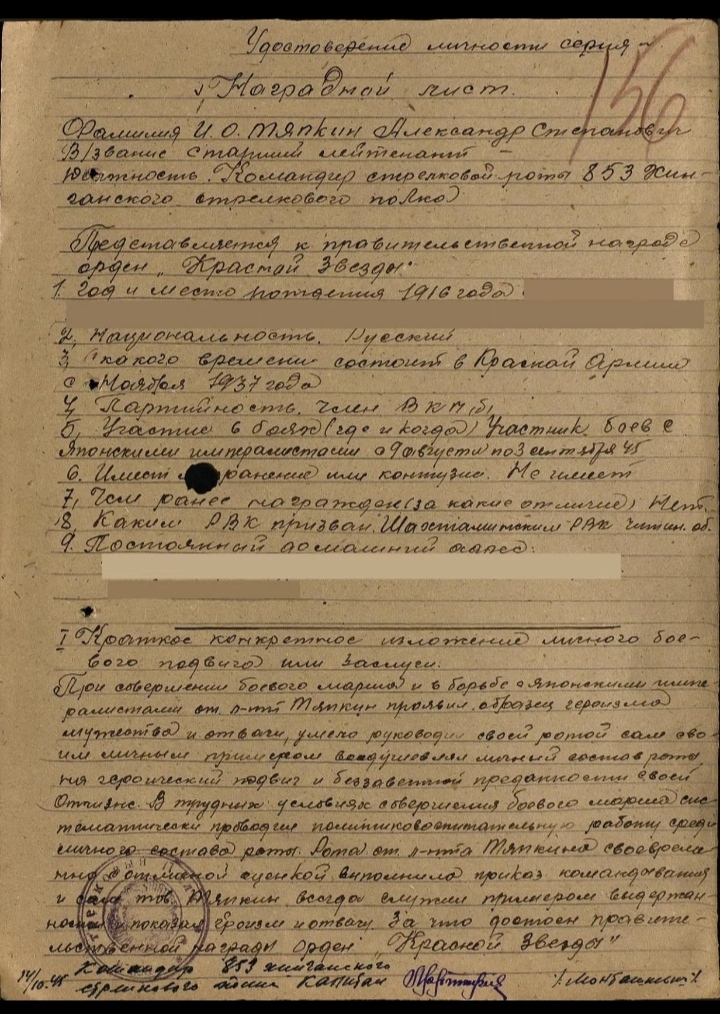 Удостоверение личности серия
156
Наградной лист.
Фамилия И.О. Тяпкин Александр Степанович
В/звание старший лейтенант
Должность. Командир стрелковой роты 853 Хин-
ганского стрелкового полка
Представляется к правительственной награде
орден „Красной Звезды"
1. Год и место рождения 1916 года
2. Национальность. Русский
3, С какого времени состоит в Красной Армии
с Ноября 1937 года
4, Партийность. Член ВКП(б)
5. Участие в боях (где и когда) Участник боев с
Японскими империалистами с 9 августа по 3 сентября 45
6. Имеет ранение или контузию. Не имеет
7, Чем ранее награжден (за какие отличие) Нет.
8, Каким РВК призван. Шахтаминским РВК читин. об.
9. Постоянный домашний адрес:
I Краткое конкретное изложение личного бое-
вого подвига или заслуги.
При совершении боевого марша и в борьбе с японскими импе-
риалистами ст. л-нт Тяпкин проявил образец героизма
мужества и отваги, умело руководил своей ротой сам сво-
им личным примером воодушевлял личный состав роты
на героический подвиг и беззаветной преданности своей
Отчизне. В трудных условиях совершения боевого марша сис-
тематически проводил политиковоспитательную работу среди
личного состава роты. Рота ст. л-нта Тяпкина своевреме-
нно с отличной оценкой выполнила приказ командования
и сам тов. Тяпкин всегда служил примером выдержан-
ности и показал героизм и отвагу. За что достоен правите-
льственной награды орден „Красной Звезды"
14/10.45 Командир 853 хинганского
стрелкового полка капитан